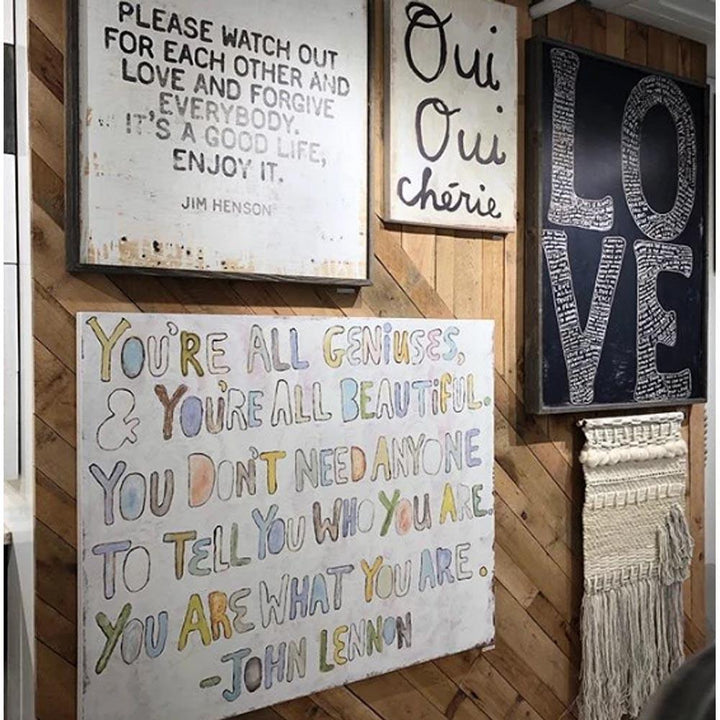 PLEASE WATCH OUT
FOR EACH OTHER AND
LOVE AND FORGIVE
EVERYBODY.
IT'S A GOOD LIFE,
ENJOY IT.
JIM HENSON
Oui
Oui
chérie
LO
VE
YOU'RE ALL GENiUSES,
& YOU'RE ALL BEAUTiFUL.
YOU DON'T NEED ANYONE
TO TELL YOU WHO YOU ARE.
YOU ARE WHAT YOU ARE.
-JOHN LENNON